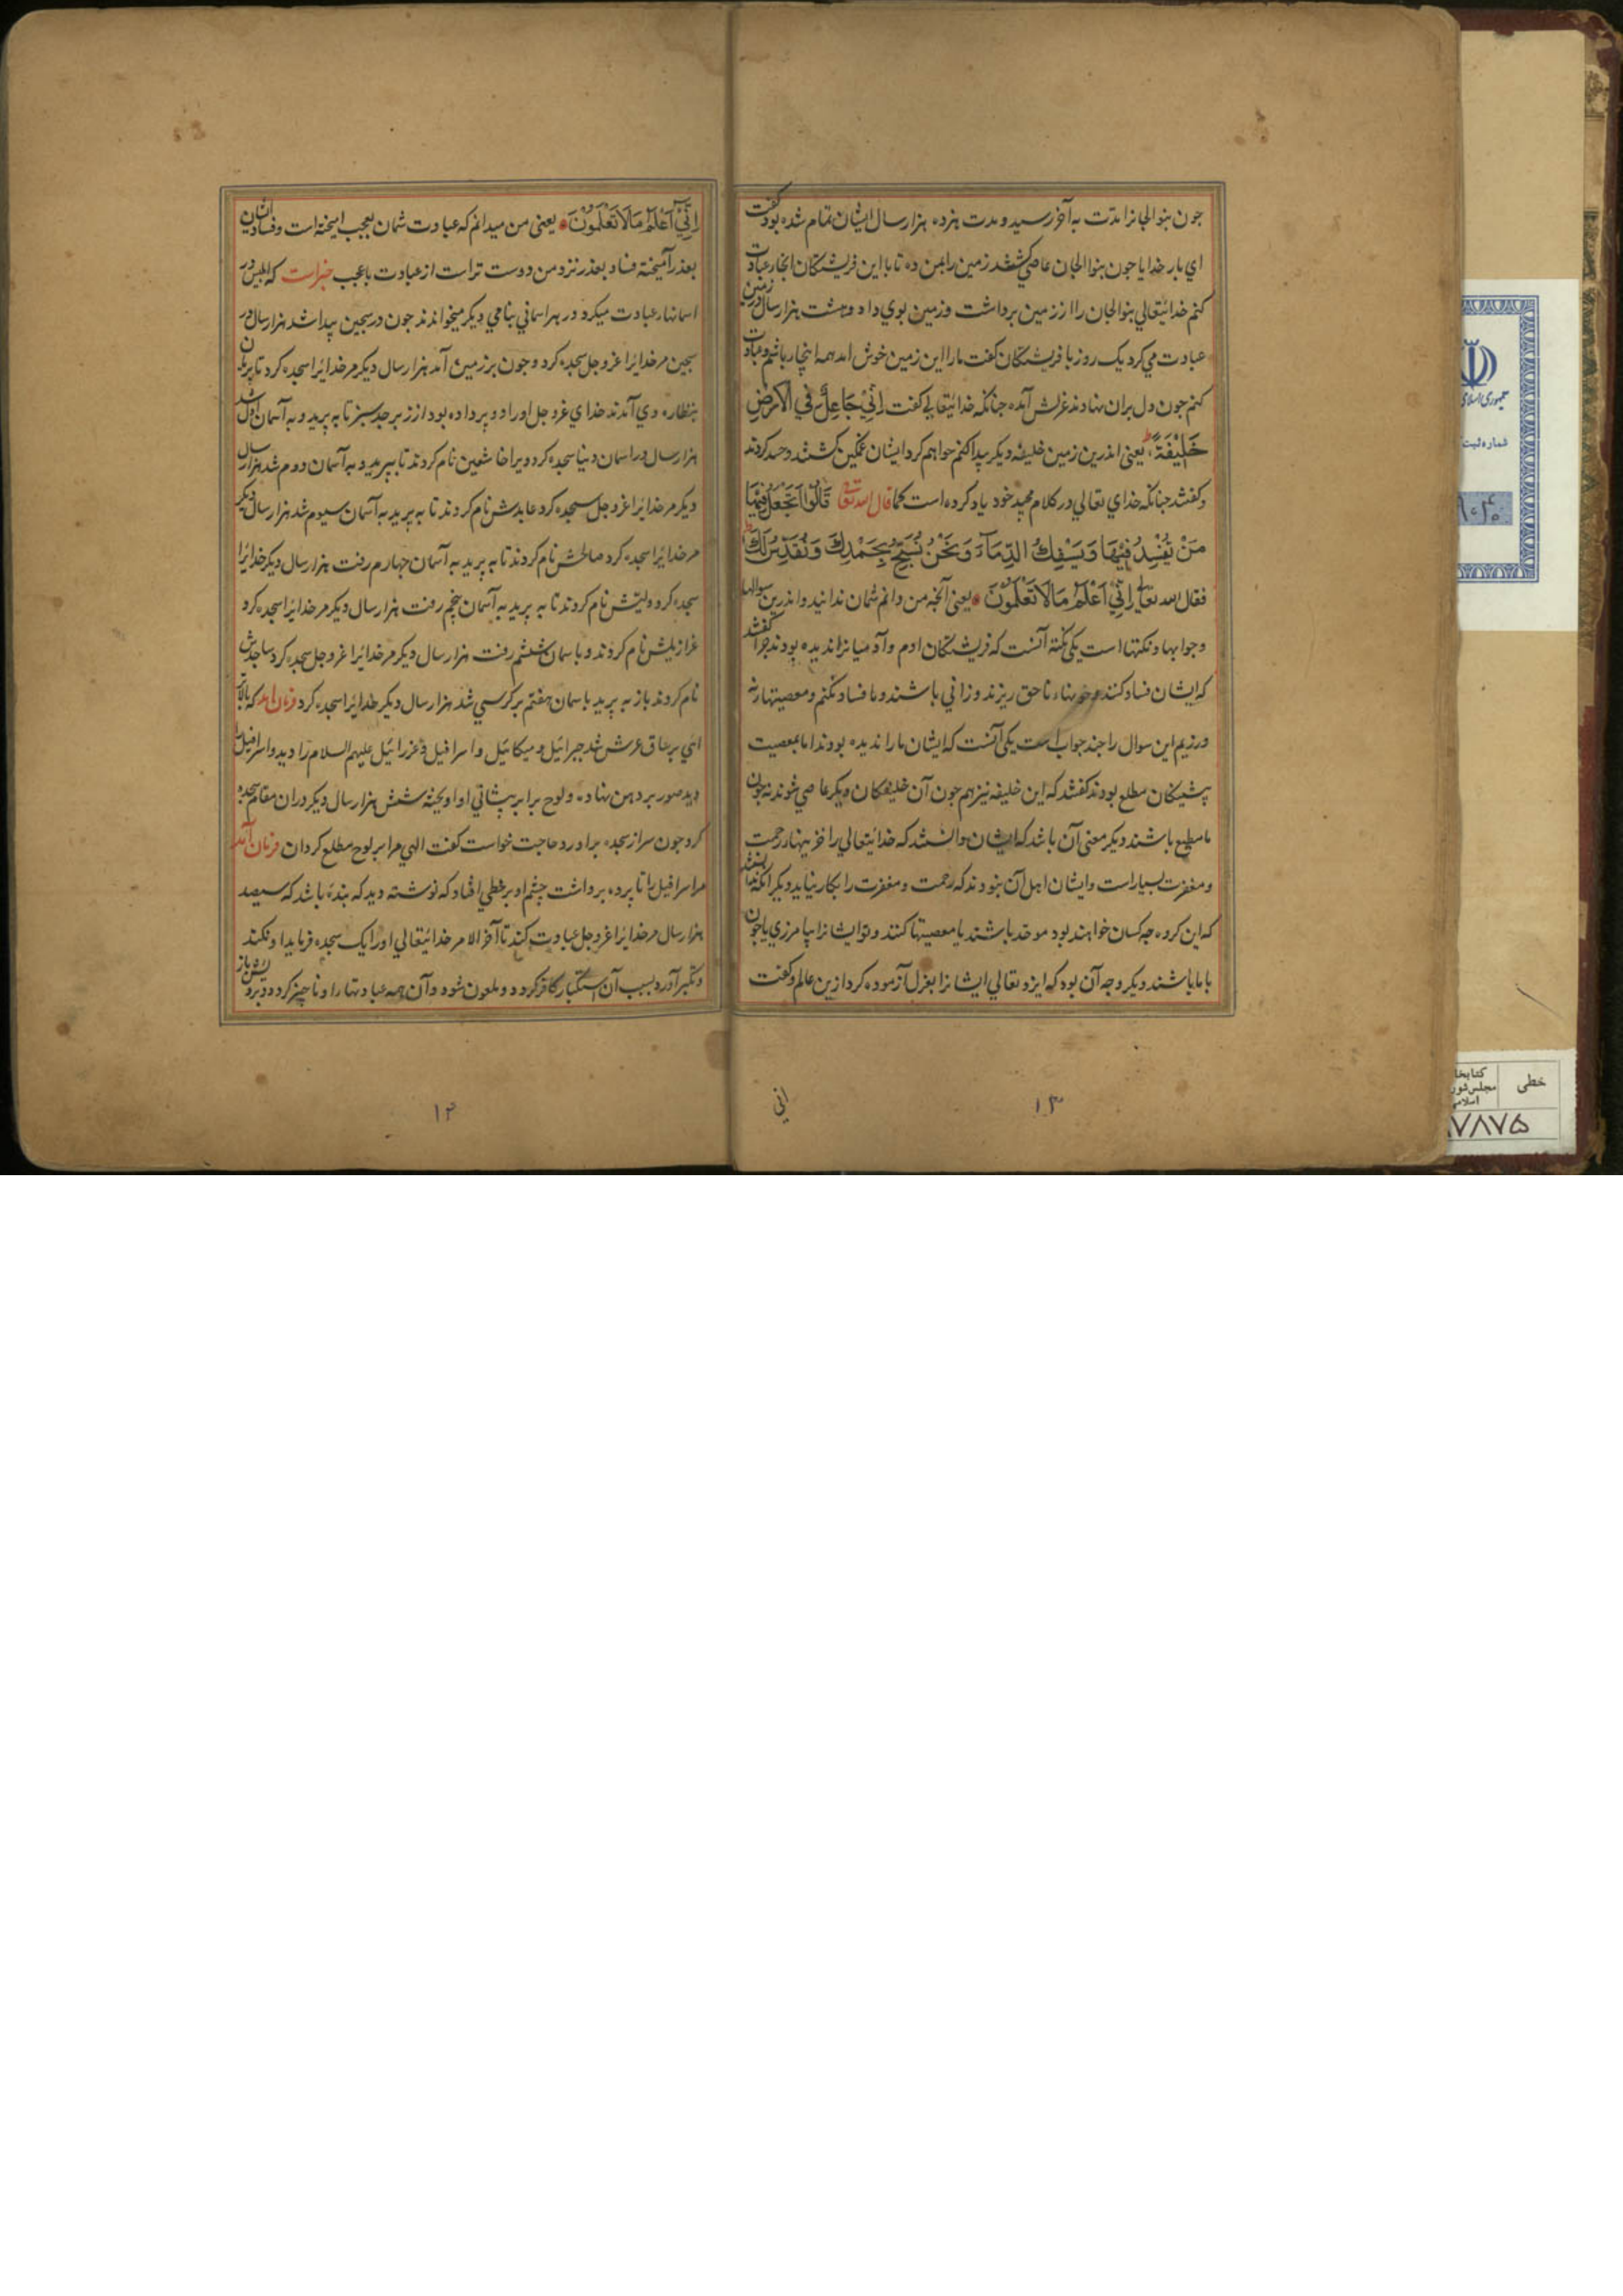 جون بنو الجانرا مدّت به آخر رسید و مدت هزده هزار سال ایشان تمام شده بود گفت
ای بار خدایا جون بنوا الجان عاصی گشتند زمین را بمن ده تا با این فریشتگان انجا رعبادت
کنم خدایتعالی بنوا الجان را از زمین برداشت و زمین بوی داد و هشت هزار سال در زمین
عبادت می کرد یک روز با فریشتگان گفت مارا این زمین خوش امد همه اینجا رباشم و عبادت
کنم جون دل بران نهادند غرلش آمده جنانکه خدایتعالی گفت اِنِّیْ جَاعِلٌ فِی الْاَرْضِ
خَلِیْفَةً یعنی اندرین زمین خلیفه دیگر پیدا کنم خواهم کرد ایشان غمگین گشتند و حسد کردند
و گفتند جنانکه خدای تعالی در کلام مجید خود یاد کرده است کما قال الله تعالی قَالُوْا اَتَجْعَلُ فِیْهَا
مَنْ یُفْسِدُ فِیْهَا وَیَسْفِكُ الدِّمَآءَ وَنَحْنُ نُسَبِّحُ بِحَمْدِكَ وَنُقَدِّسُ لَكَ
فقال الله تعالی اِنِّیْ اَعْلَمُ مَالَا تَعْلَمُوْنَ یعنی آنجه من دانم شمان ندانید و اندرین سوالها
و جوابها و نکتها است یکی نکته آنست که فریشتگان ادم و آدمیانرا ندیده بودند جرا گفتند
که ایشان فساد کنند و خونهاء ناحق ریزند و زانی باشند و ما فساد نکنم و معصیتها رنه
ورزیم این سوال را جند جواب است یکی آنست که ایشان ما را ندیده بودند اما بمعصیت
پیشیگان مطلع بودند گفتند که این خلیفه نیز هم جون آن خلیفگان دیگر عاصی شوند نه جون
ما مطیع باشند دیگر معنی آن باشد که ایشان دانستند که خدایتعالی را خزینها رحمت
و مغفرت بسیار است و ایشان اهل آن بنودند که رحمت و مغفرت را بکار بناید دیگر انکه
که این گروه جه کسان خواهند بود موحد باشند یا معصیتها کنند و تو ایشانرا بیامرزی یا جون
با ما باشند دیگر وجه آن بود که ایزد تعالی ایشانرا بغزل آزموده کرد ازین عالم و گفت
انی
۱۳
اِنِّیْ اَعْلَمُ مَالَا تَعْلَمُوْنَ یعنی من میدانم که عبادت شمان بعجب امیخته است و فساد ایشان
بعذر آمیخته فساد بعذر نزد من دوست تر است از عبادت باعجب خبر است که ابلیس در
اسمانها رعبادت میکرد در هر اسمانی بنامی دیگر میخواندند جون در سجین پیدا شد هزار سال در
سجین مر خدایرا عزوجل سجده کرد و جون بر زمین آمد هزار سال دیگر مر خدایرا سجده کرد تا
بنظاره وی آمدند خدای عزوجل اورا دو پر داده بود از زبرجد سبز تا به پرید و به آسمان اول شد
هزار سال در اسمان دنیا سجده کرد ویرا خاشعین نام کردند تا بپرید و به آسمان دوم شد هزار سال
دیگر مر خدایرا عزوجل سجده کرد عابدش نام کردند تا به پرید به آسمان سیوم شد هزار سال دیگر
مر خدایرا سجده کرد صالحش نام کردند تا به پرید به آسمان جهارم رفت هزار سال دیگر خدایرا
سجده کرد ولیّش نام کردند تا به پرید به آسمان پنجم رفت هزار سال دیگر مر خدایرا سجده کرد
عزازیلش نام کردند و با سمان ششم رفت هزار سال دیگر مر خدایرا عزوجل سجده کرد ساجدش
نام کردند باز به پرید با سمان هفتم بر کرسی شد هزار سال دیگر خدایرا سجده کرد فرمان امد که بالا
ائی بر ساق عرش شد جبرائیل و میکائیل و اسرافیل و عزرائیل علیهم السلام را دید و اسرافیل را
دید صور بر دهن نهاده و لوح برابر پیشانی او اویخته شش هزار سال دیگر در ان مقام سجده
کرد جون سر از سجده براورد حاجت خواست گفت الهی مرا بر لوح مطلع گردان فرمان آمد
مر اسرافیل را تا پرده برداشت چشم او بر خطی افتاد که نوشته دید که بنده باشد که سیصد
هزار سال مر خدایرا عزوجل عبادت کند تا آخر الامر خدایتعالی اورا یک سجده فرماید او نکند
و تکبر آورد بسبب آن استکبار کافر گردد و ملعون شود و آن همه عبادتها را و ناچیز گردد
۱۴
جمهوری اسلامی
شماره ثبت
خطی
کتابخا
مجلس شور
اسلامی
۷۸۷۵